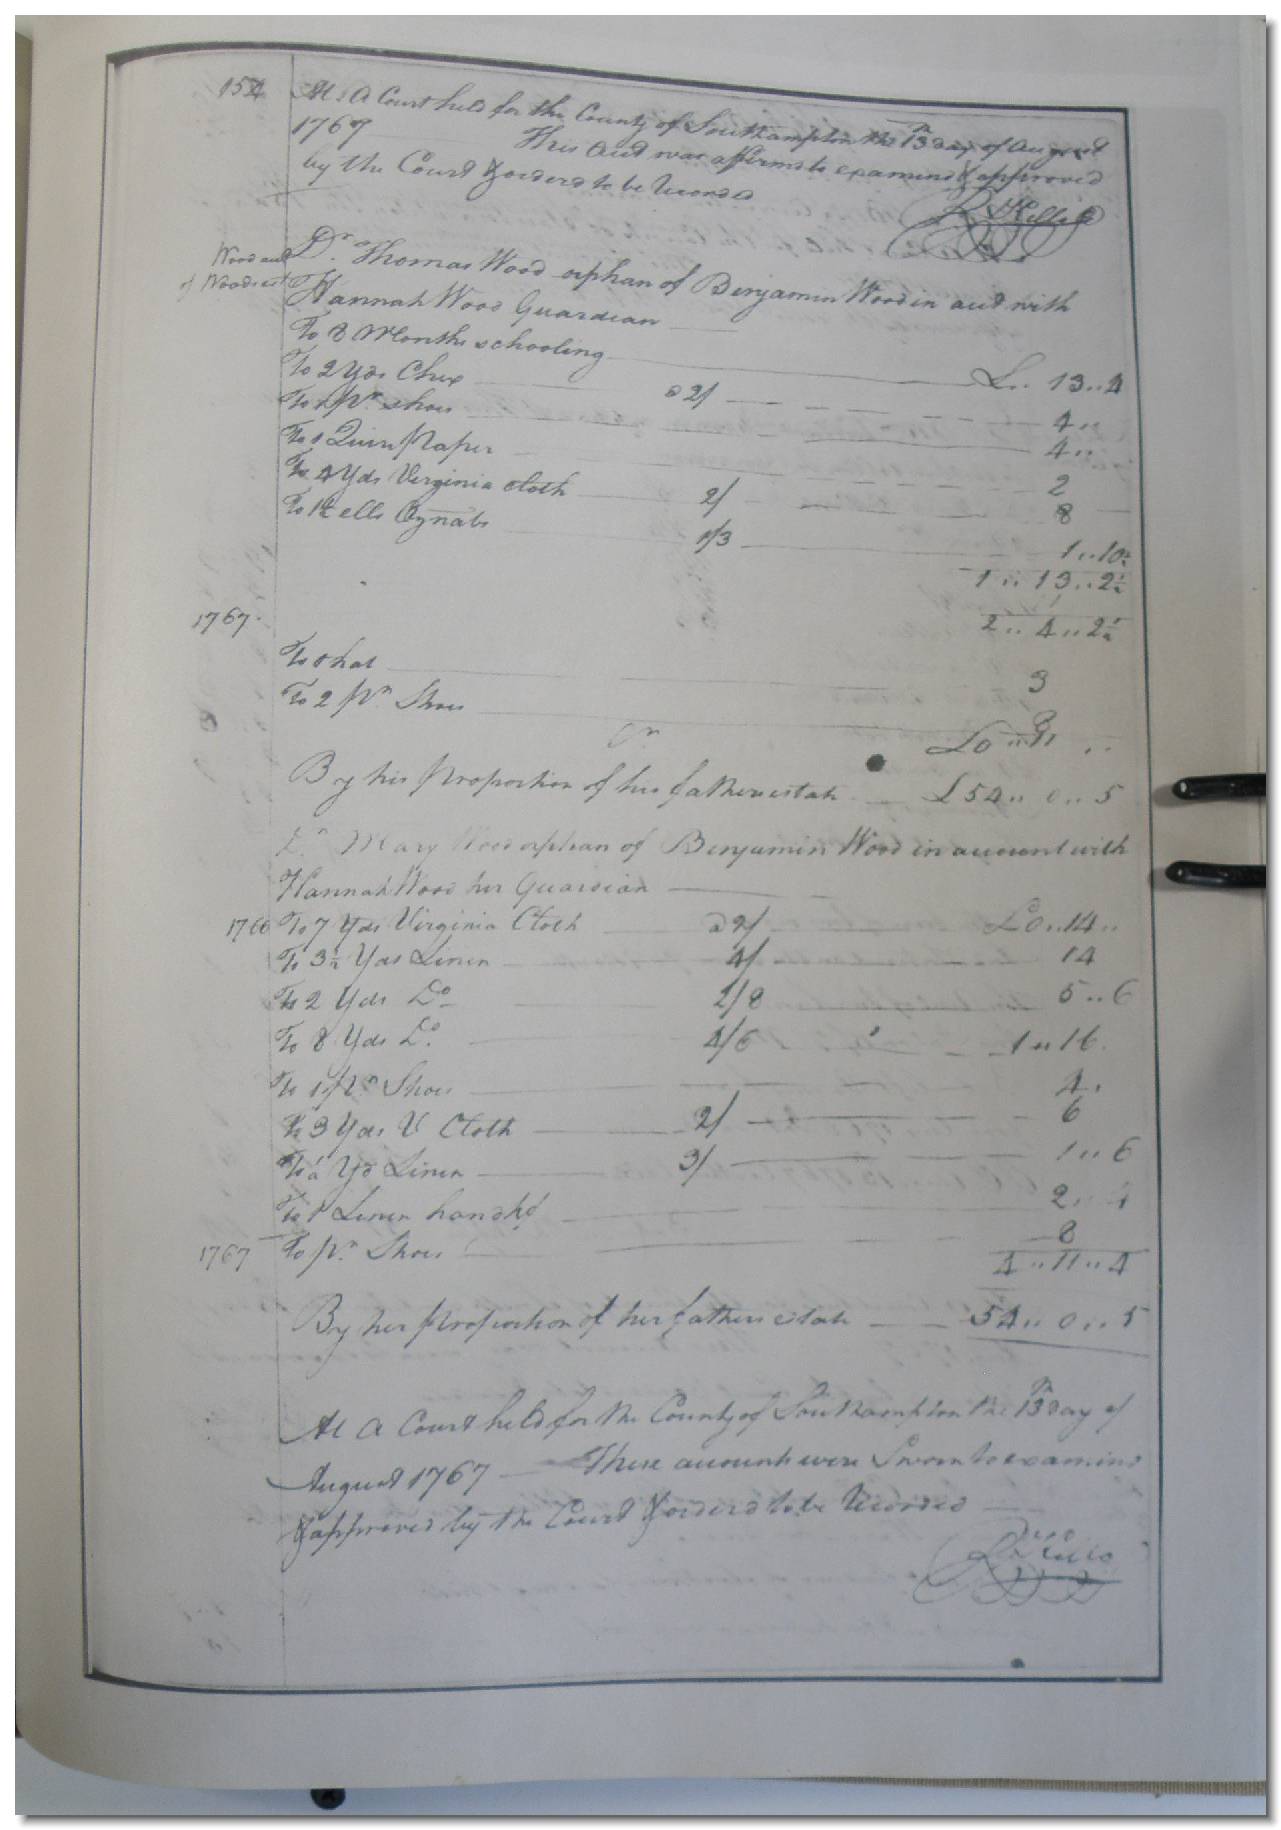 154
At a Court held for the County of Southampton the 13th day of August
1767 This Acct was affirm'd to examined & approved
by the Court & orderd to be Recorded
R Kello
Wood acct
of Woods est
Dr. Thomas Wood orphan of Benjamin Wood in acct with
Hannah Wood Guardian
To 8 Months schooling £ .. 13 .. 4
To 2 Yds Chex @ 2/ 4 ..
To 1 Pr. shoes 4 ..
To 1 Quire Paper 2
To 4 Yds Virginia cloth 2/ 8
To 1½ ells Oznabs 1/3 1 .. 10½
1 .. 13 .. 2½
1767 2 .. 4 .. 2½
To 1 hat 3
To 2 Pr. Shoes 8
Cr £0 .. 11 ..
By his Proportion of his fathers estate £54 .. 0 .. 5
Dr. Mary Wood orphan of Benjamin Wood in account with
Hannah Wood her Guardian
1766 To 7 Yds Virginia Cloth @ 2/ £0 .. 14 ..
To 3½ Yds Linen 4/ 14
To 2 Yds Do 2/8 5 .. 6
To 8 Yds Do. 4/6 1 .. 16
To 1 Pr Shoes 4 .
To 3 Yds V Cloth 2/ 6
To ½ Yd Linen 3/ 1 .. 6
To 1 Linen handkf 2 .. 4
1767 To Pr. Shoes 8
4 .. 11 .. 4
By her Proportion of her fathers estate 54 .. 0 .. 5
At a Court held for the County of Southampton the 13th day of
August 1767 These accounts were Sworn to examind
& approved by the Court & orderd to be Recorded
R Kello